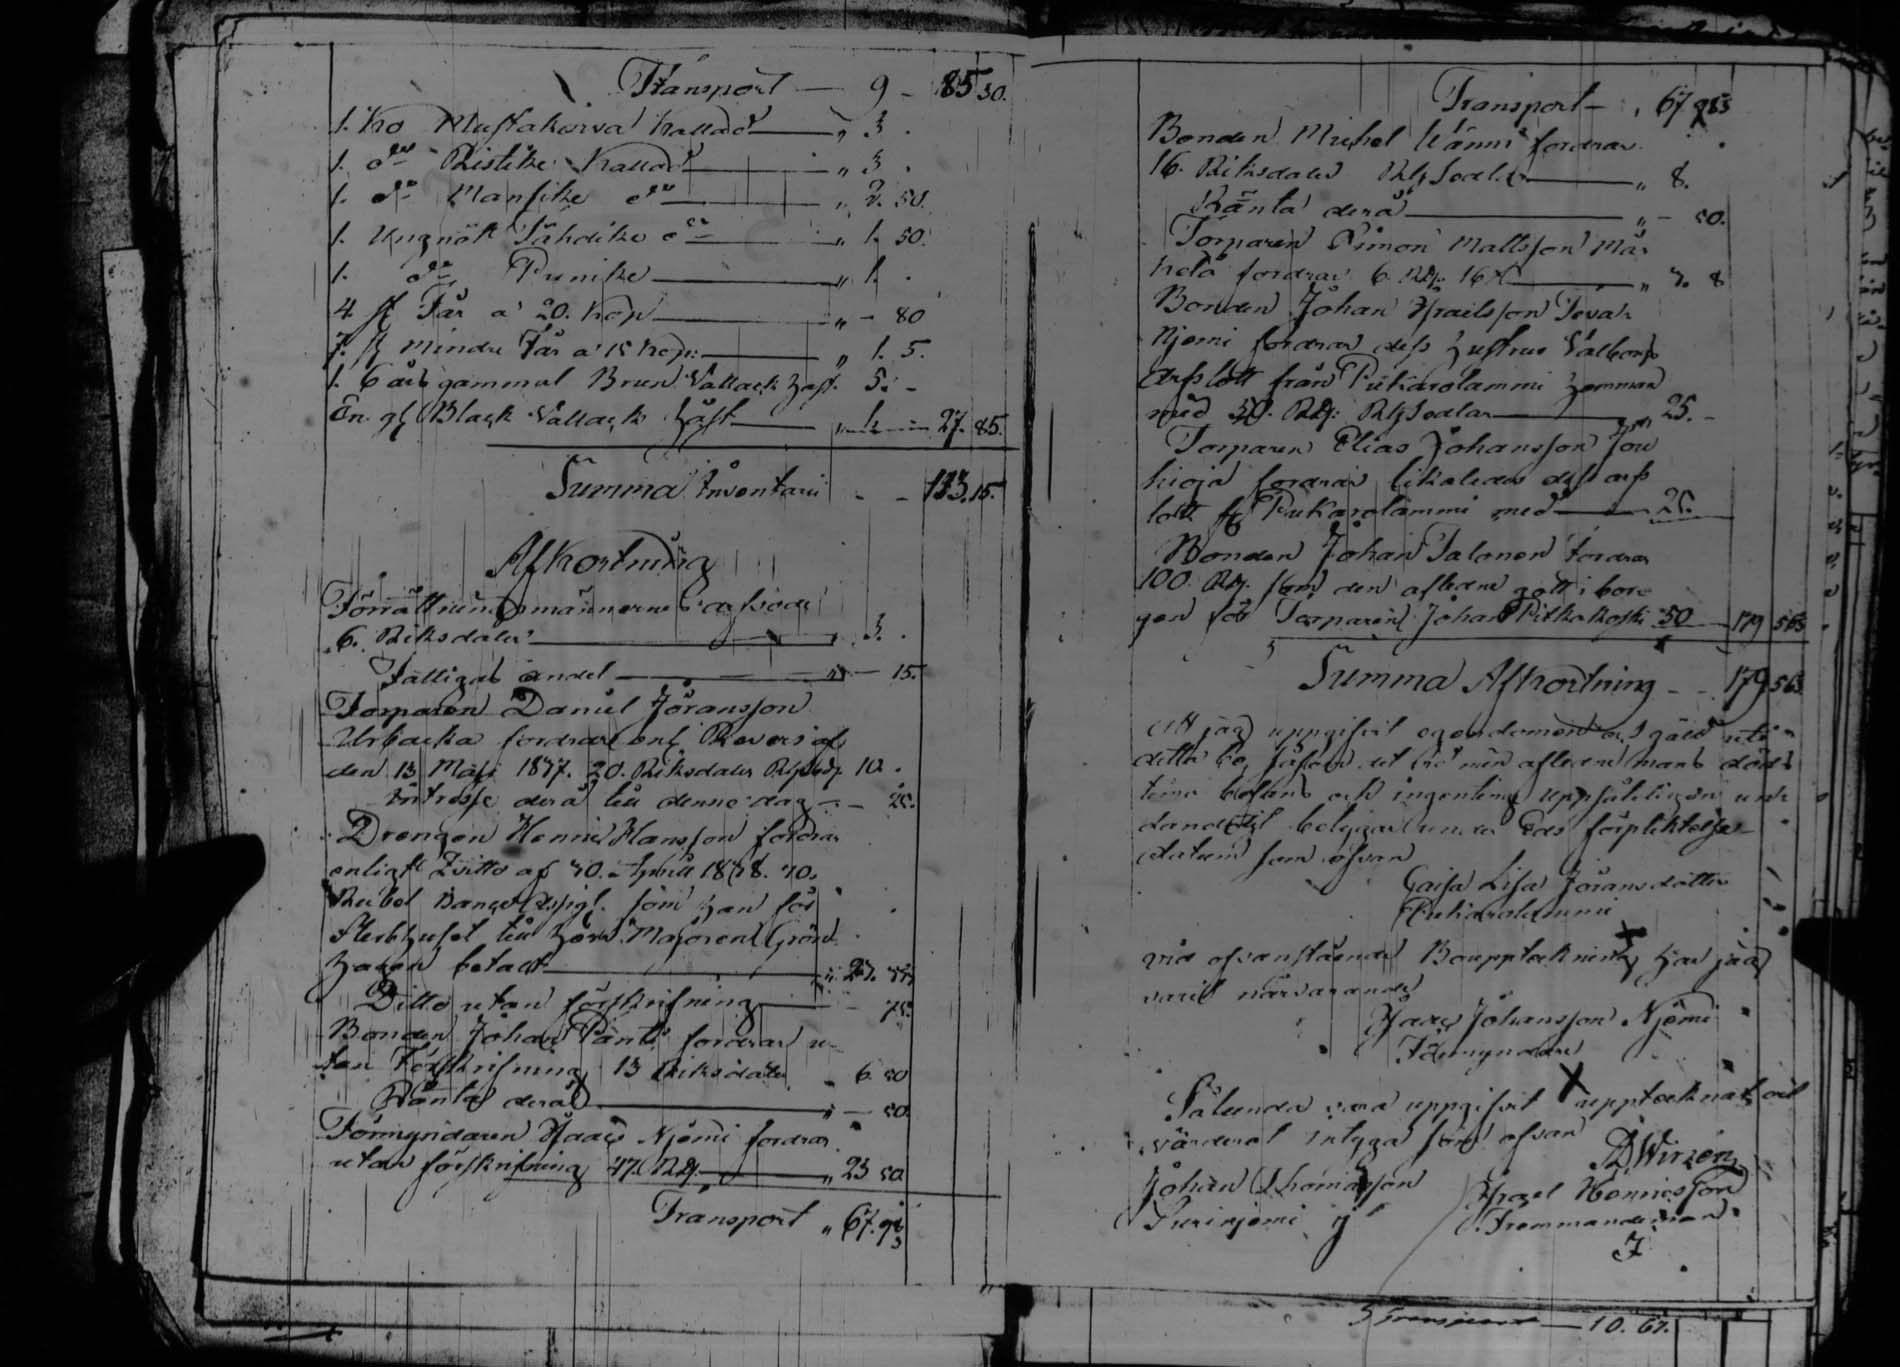 Transport — 9 — 85 30.
1. Ko Mustakorva kallad — " 3 .
1. do Ristike kallad — " 3 .
1. do Mansike do — " 2. 50.
1. Ungnöt Tähdike do — " 1. 50.
1. do Punike — " 1. .
4 st Får a' 20. kop — " — 80
7. st mindre Får a' 15 kop: — " 1. 5.
1. 6 års gammal Brun Vallack häst. 5. —
En gl Black Vallack häst — 27. 85.
Summa Inventarii — — 113. 15.
Afkortning
Förrättningsmännerne
6. Riksdaler — " 3. .
Fattigas andel — " — 15.
Torparen Daniel Jöransson
Urbacka fordrar enl Revers af
den 13 Maji 1837. 20. Riksdaler 10. .
Intresse derå till denne dag — — 25.
Drengen Henric Hansson fordrar
enligt Qvitto af 30. Aprill 1838.
Rubel Banco Assign. som han för
Sterbhuset till Herr Majoren Grön
hagen betalt — " 23.
Ditto utan förskrifning — 75.
Bonden Johan Pantti fordrar u-
tan Förskrifning 13 Riksdaler " 6. 50
Ränta derå — " — 50.
Förmyndaren Isaac Njemi fordrar
utan förskrifning 47. Rdr. — " 23 50
Transport " 67.
Transport — " 67
Bonden Michel Känni fordrar
16. Riksdaler — " 8.
Ränta derå — " — 50.
Torparen Simon Mattsson Mär
kelä fordrar 6. Rdr 16 — " 3. 8
Bonden Johan Israelsson
Njemi fordrar dess hustrus Valborgs
arfslott från Pukarolammi hemman
med 50. Rdr: — " 25. —
Torparen Elias Johansson Jou
kioja fordrar likaledes dess arfs
lott fr Pukarolammi med — 25.
Bonden Johan Salonen fordrar
100. Rdr. som den aflidne gått i bor-
gen för Torparen Johan Pitkäkoski 50 — 179 563
Summa Afkortning — — 179 563
Att jag uppgifvit egendomen och gäld uti
detta bo, sådan det vid min aflidne mans döds
timma befans och ingenting uppsåteligen und-
dandolgt betygar under Eds förpliktelse
datum som ofvan
Caisa Lisa Jöransdotter
Pukarolammi
Vid ofvanstående Bouppteckning har jag
varit närvarande
Isaac Johansson Njemi
Förmyndare
Sålunda vara uppgifvit upptecknat och
värderat intyga som ofvan
Wirzén
Johan Thomasson Israel Henricsson